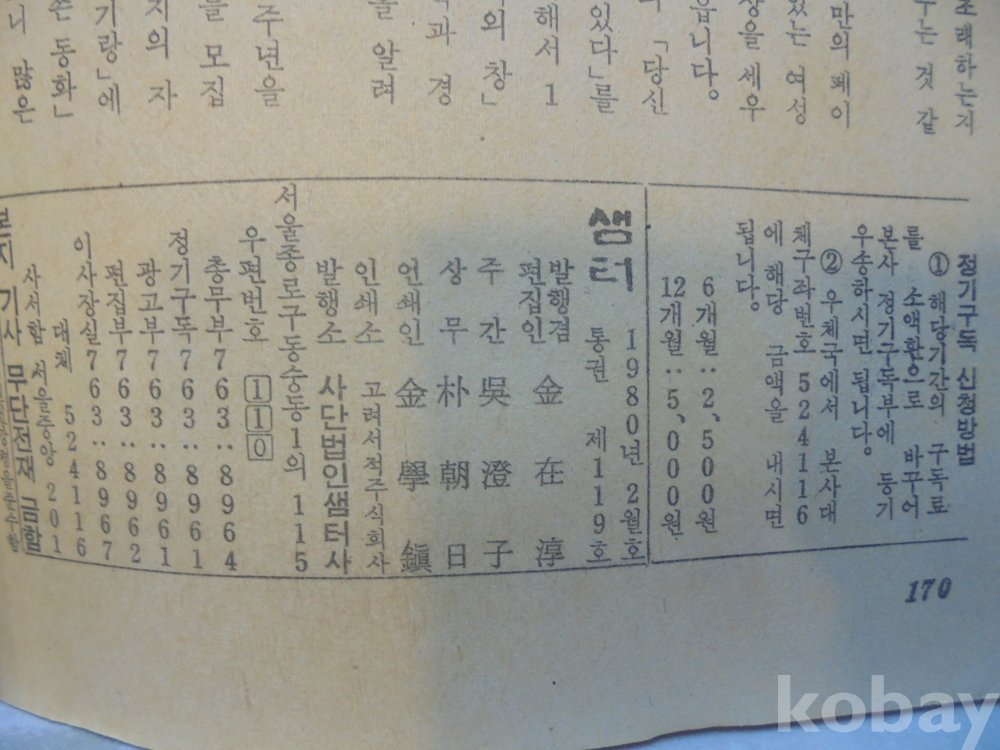 조래하는지
우는 것 같
만의 페이
있는 여성
상을 세우
읍니다.
의 「당신
있다」를
해서 1
의 창」
과 경
을 알려
주년을
를 모집
지의 자
기랑」에
는 동화」
니 많은
정기구독 신청방법
① 해당기간의 구독료
를 소액환으로 바꾸어
본사 정기구독부에 등기
우송하시면 됩니다.
② 우체국에서 본사대
체구좌번호 524116
에 해당 금액을 내시면
됩니다.
6개월‥2,500원
12개월‥5,000원
샘터 1980년 2월호
통권 제119호
발행겸
편집인 金在淳
주간 吳澄子
상무 朴朝日
언쇄인 金學鎭
인쇄소 고려서적주식회사
발행소 사단법인샘터사
서울종로구동숭동1의 115
우편번호 110
총무부 763‥8964
정기구독 763‥8961
광고부 763‥8961
편집부 763‥8962
이사장실 763‥8967
대체 524116
사서함 서울중앙 201
본지 기사 무단전재 금함
170
kobay